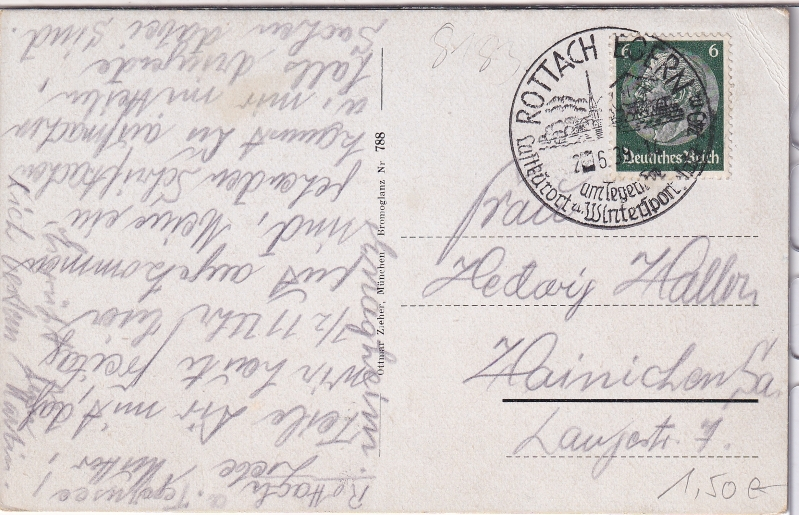 Rottach a. Tegernsee,
Liebe Mutter,
teile dir mit, daß
wir heute Freitag
1/2 11 Uhr hier
gut angekommen
sind. Meine ein-
gehenden Schriftsachen
kannst du aufmachen
u. mir mitteilen,
falls dringende
Sachen dabei sind.
dich bestens
Martin.
Ottmar Zieher, München Bromoglanz Nr 788
ROTTACH EGERN
6.38
am Tegernsee
Luftkurort u. Wintersport
6 6
Deutsches Reich
Frau
Hedwig Haller
Hainichen Sa.
Langestr. 7.
1,50 €